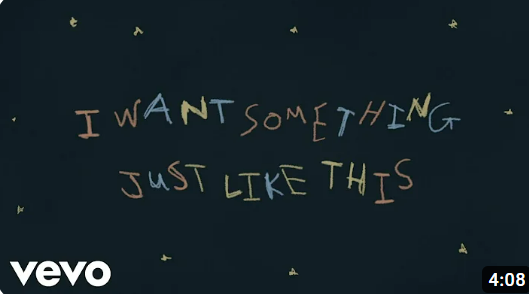 I WANT SOMETHING
JUST LIKE THIS
vevo
4:08